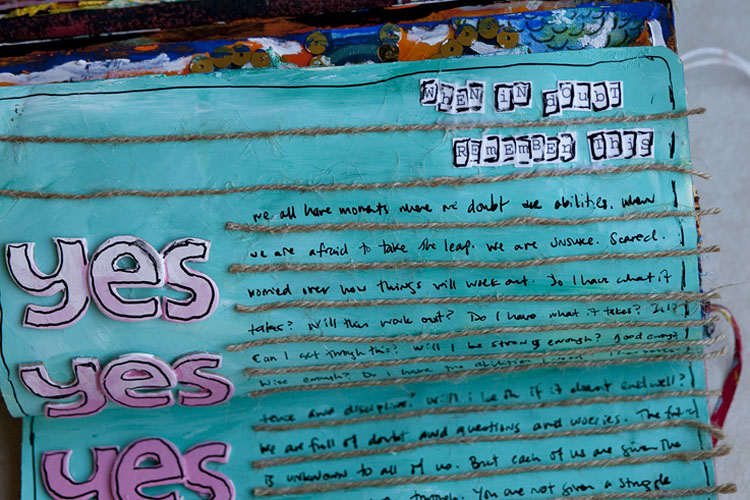 When in doubt
Remember this
yes
yes
yes
we all have moments where we doubt our abilities. when
we are afraid to take the leap. we are unsure. scared.
worried over how things will work out. Do I have what it
takes? Will this work out? Do I have what it takes?
Can I get through this? Will I be strong enough? good enough?
Wise enough? Do I have the
tence and discipline? Will i be ok if it doesnt end well?
we are full of doubt and questions and worries. The future
is unknown to all of us. But each of us are given the
You are not given a struggle